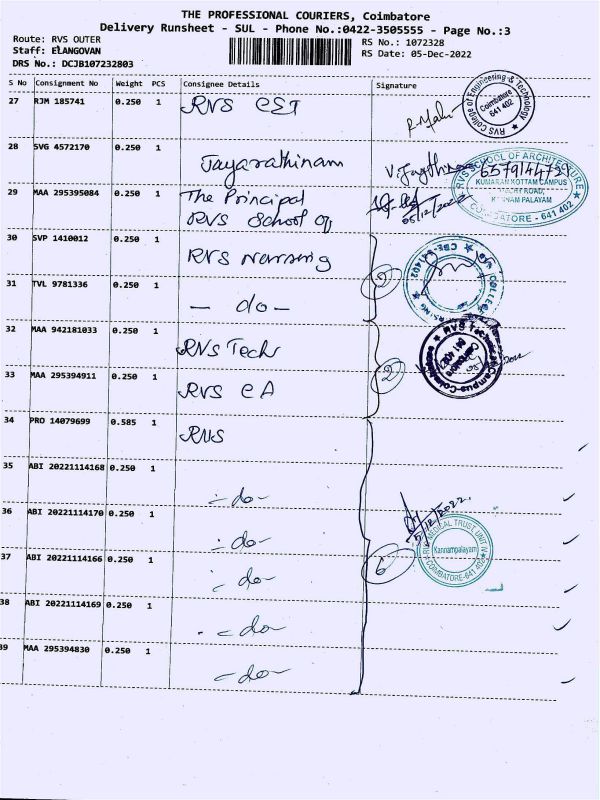 THE PROFESSIONAL COURIERS, Coimbatore
Delivery Runsheet - SUL - Phone No.:0422-3505555 - Page No.:3
Route: RVS OUTER
Staff: ELANGOVAN
DRS No.: DCJB107232803
RS No.: 1072328
RS Date: 05-Dec-2022
S No Consignment No Weight PCS Consignee Details Signature
27 RJM 185741 0.250 1 RVS CET
RVS College of Engineering & Technology
Coimbatore
641 402
28 SVG 4572170 0.250 1 Jayarathinam
6379144729
RVS SCHOOL OF ARCHITECTURE
KUMARAN KOTTAM CAMPUS
COIMBATORE - 641 402
29 MAA 295395084 0.250 1 The Principal
RVS School of
05/12/2022
30 SVP 1410012 0.250 1 RVS Nursing
31 TVL 9781336 0.250 1 - do -
32 MAA 942181033 0.250 1 RVS Tech
33 MAA 295394911 0.250 1 RVS CA
2
34 PRO 14079699 0.585 1 RVS
35 ABI 20221114168 0.250 1 - do -
36 ABI 20221114170 0.250 1 - do -
5/12/2022.
RVS MEDICAL TRUST UNIT IV
Kannampalayam
COIMBATORE-641 402
6
37 ABI 20221114166 0.250 1 - do -
38 ABI 20221114169 0.250 1 - do -
39 MAA 295394830 0.250 1 - do -